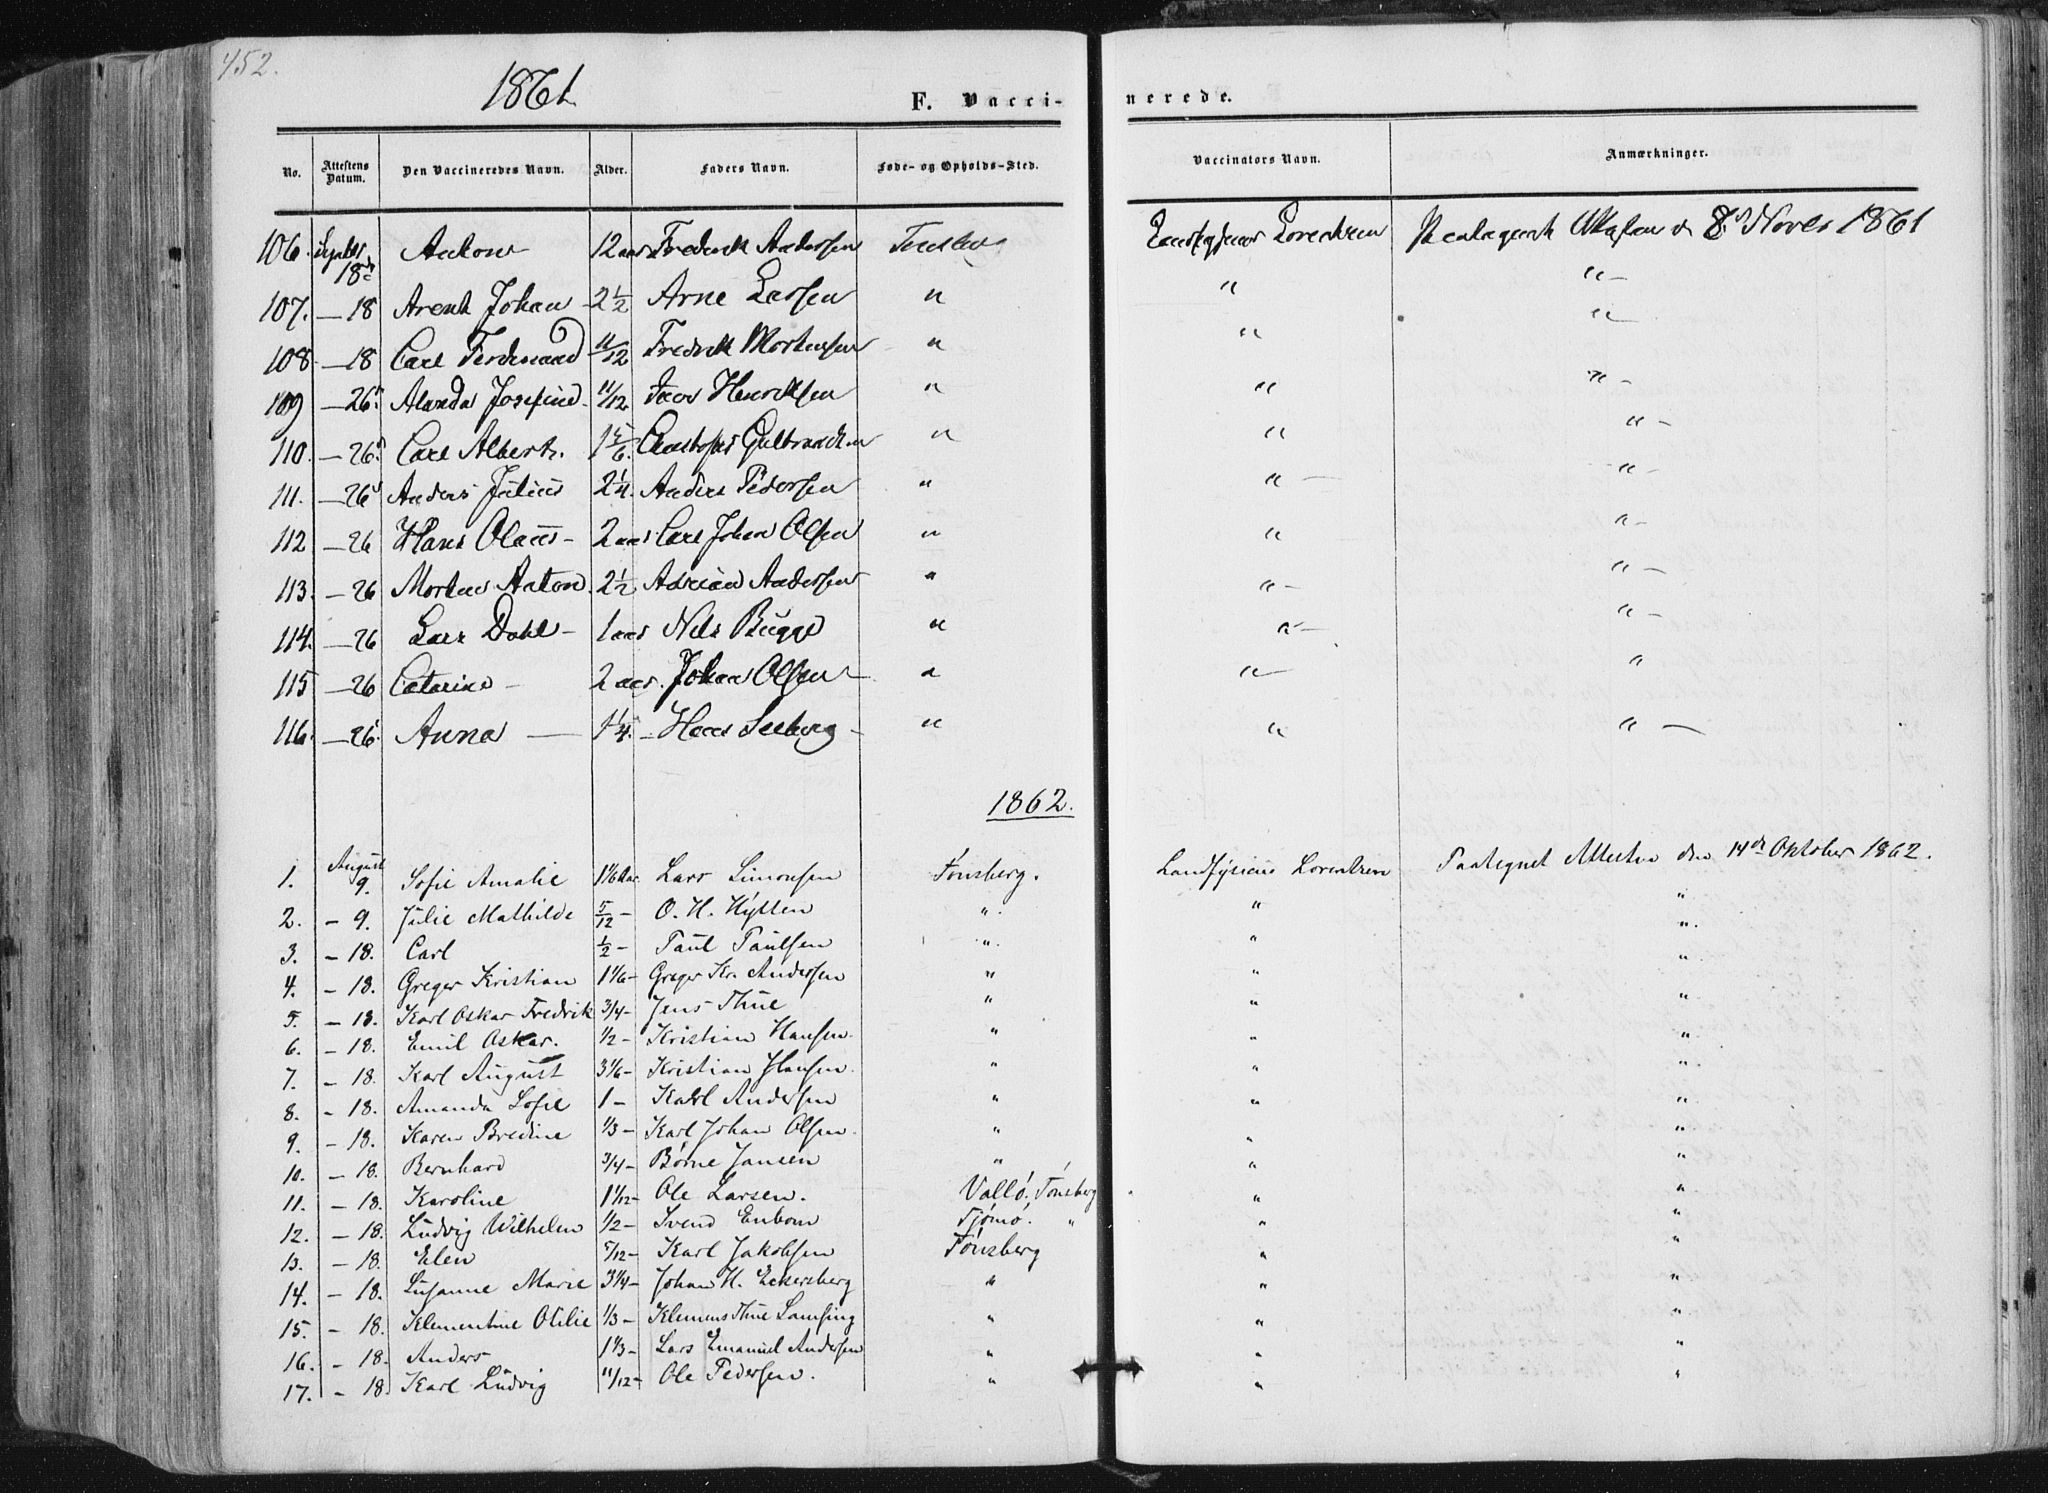 452.
1861
F. Vacci-nerede.
No. Attestens Datum. Den Vaccineredes Navn. Alder. Faders Navn. Føde- og Opholds-Sted. Vaccinators Navn. Anmærkninger.
106. Septbr 18de Anton 12 aar Fredrik Andersen Tønsberg Landfysicus Lorentzen 8de Novbr 1861
107. — 18 Arent Johan 2 1/2 Arne Larsen " " "-
108 — 18 Carl Ferdinand 11/12 Fredrik Mortensen " " "-
109 — 26. Josefine 11/12 Henriksen " " "-
110. — 26. Carl Albert. 1 5/6. Christopher Gulbrandsen " " "-
111. — 26 Anders Julius 2 1/4. Anders Pedersen " " — "-
112 — 26 Hans Olaus - 2 aar Carl Johan Olsen " " "-
113. — 26 Morten Anton. 2 1/2 Adrian Andersen " " - "-
114. — 26 Lars Dahl - 1 aar Nils Bugge " " - "-
115 — 26 Catarine - 2 aar. Johan Olsen " " - "
116. — 26. Anna — 1 1/4. - Hans Seeberg - " " " —
1862.
1. August 9. Sofie Amalie 1 1/6 Aar. Lars Simonsen Tønsberg. Landfysicus Lorentzen Paategnet Attesten den 14de Oktober 1862.
2. - 9. Julie Mathilde 5/12 - O. H. Hytten " " "
3. - 18. Carl 1/2 - Paul Paulsen " " "
4. - 18. Greger Kristian 1 1/6 - Greger Kr. Andersen " " "
5. - 18. Karl Oskar Fredrik 3/4 - Jens Thue " " "
6. - 18. Emil Oskar. 1/2 - Kristian Hansen. " " "
7. - 18. Karl August 3 1/6 - Kristian Hansen. " " "
8. - 18. Amanda Sofie 1 - Karl Andersen " " "
9. - 18. Karen Bredine 1/3 - Karl Johan Olsen. " " "
10. - 18. Bernhard 3/4 - Børne Jansen " " "
11. - 18. Karoline 1 1/12 - Ole Larsen. Vallö. Tönsberg " "
12. - 18. Ludvig Wilhelm 1/2 - Svend Enbom Tjömö. " " "
13. - 18. Elen 5/12 - Karl Jakobsen Tönsberg " "
14. - 18. Susanne Marie 3 1/4 - Johan H. Eckersberg " " "
15. - 18. Klementine Otilie 1/3 - Klemens Thue Lamsing " " "
16. - 18. Anders 1 1/3 - Lars Emanuel Andersen " " "
17. - 18. Karl Ludvig 11/12 - Ole Pedersen. " " "